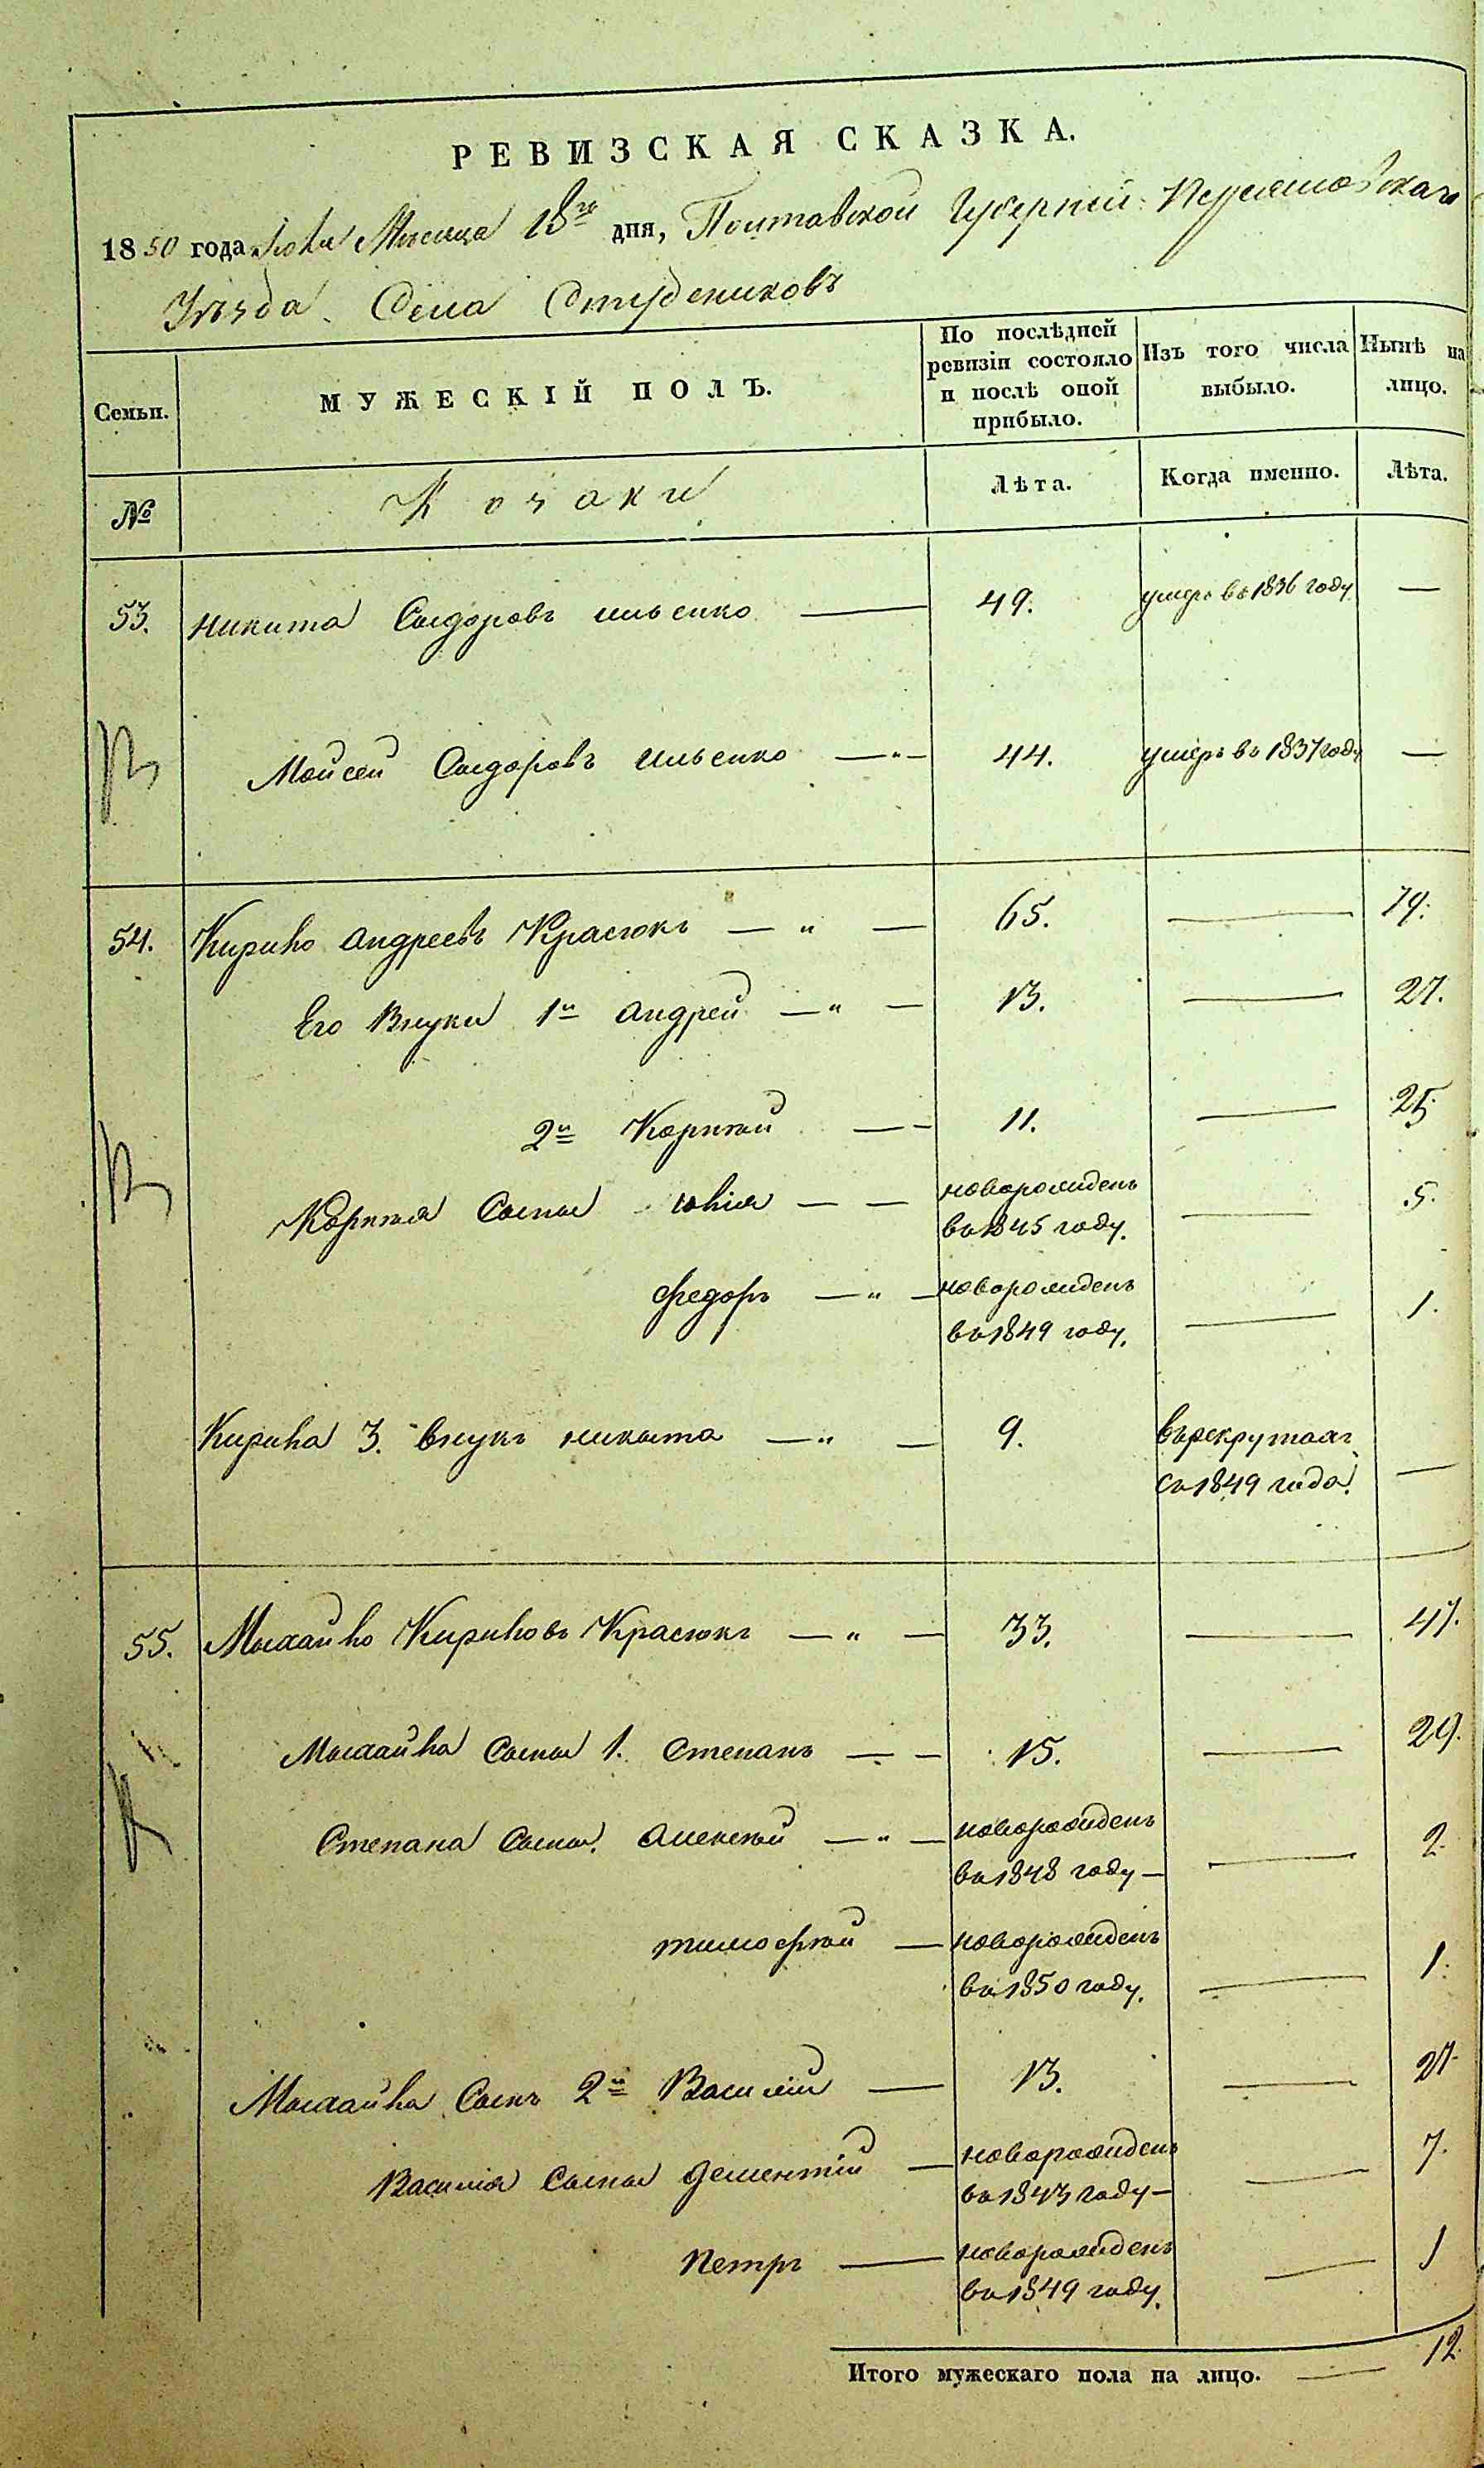 РЕВИЗСКАЯ СКАЗКА.
1850 года Мѣсяца 18го дня, Полтавской Губерніи Переяславскаго
Уѣзда Села Студениковъ
Семьи. МУЖЕСКІЙ ПОЛЪ. По послѣдней ревизіи состояло и послѣ оной прибыло. Изъ того числа выбыло. Нынѣ на лицо.
№ Козаки Лѣта. Когда именно. Лѣта.
53. Никита Сыдоровъ Ильенко — 49. умеръ въ 1836 году —
Мойсей Сыдоровъ Ильенко — 44. умеръ въ 1837 году —
54. Кирило Андреевъ Красюкъ — " — 65. — 79.
Его Внуки 1й Андрей — " — 13. — 27.
2й Корнѣй — 11. — 25.
Корнѣя Сыны Юлія — — новорожденъ — 5.
въ 1845 году.
Федоръ — " — новорожденъ — 1.
въ 1849 году.
Кирила 3. Внукъ Никыта — " — 9. въ рекрутахъ —
съ 1849 года.
55. Мыхайло Кириловъ Красюкъ — " — 33. — 47.
Мыхайла Сыны 1. Степанъ — — 15. — 29.
Степана Сыны. Алексѣй — " — новорожденъ — 2.
въ 1848 году —
Тимофѣй — новорожденъ — 1.
въ 1850 году.
Мыхайла Сынъ 2й Василій — 13. — 27.
Василія Сыны Дементій — новорожденъ — 7.
въ 1843 году —
Петръ — новорожденъ — 1
въ 1849 году.
Итого мужескаго пола на лицо. — 12.